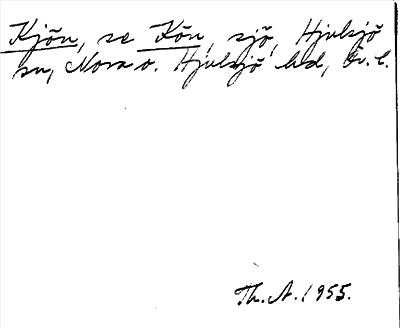 Kjön, se Kön, sjö, Hjulsjö
sn, Nora o. Hjulsjö hd, Ör. l.
Th. A. 1955.